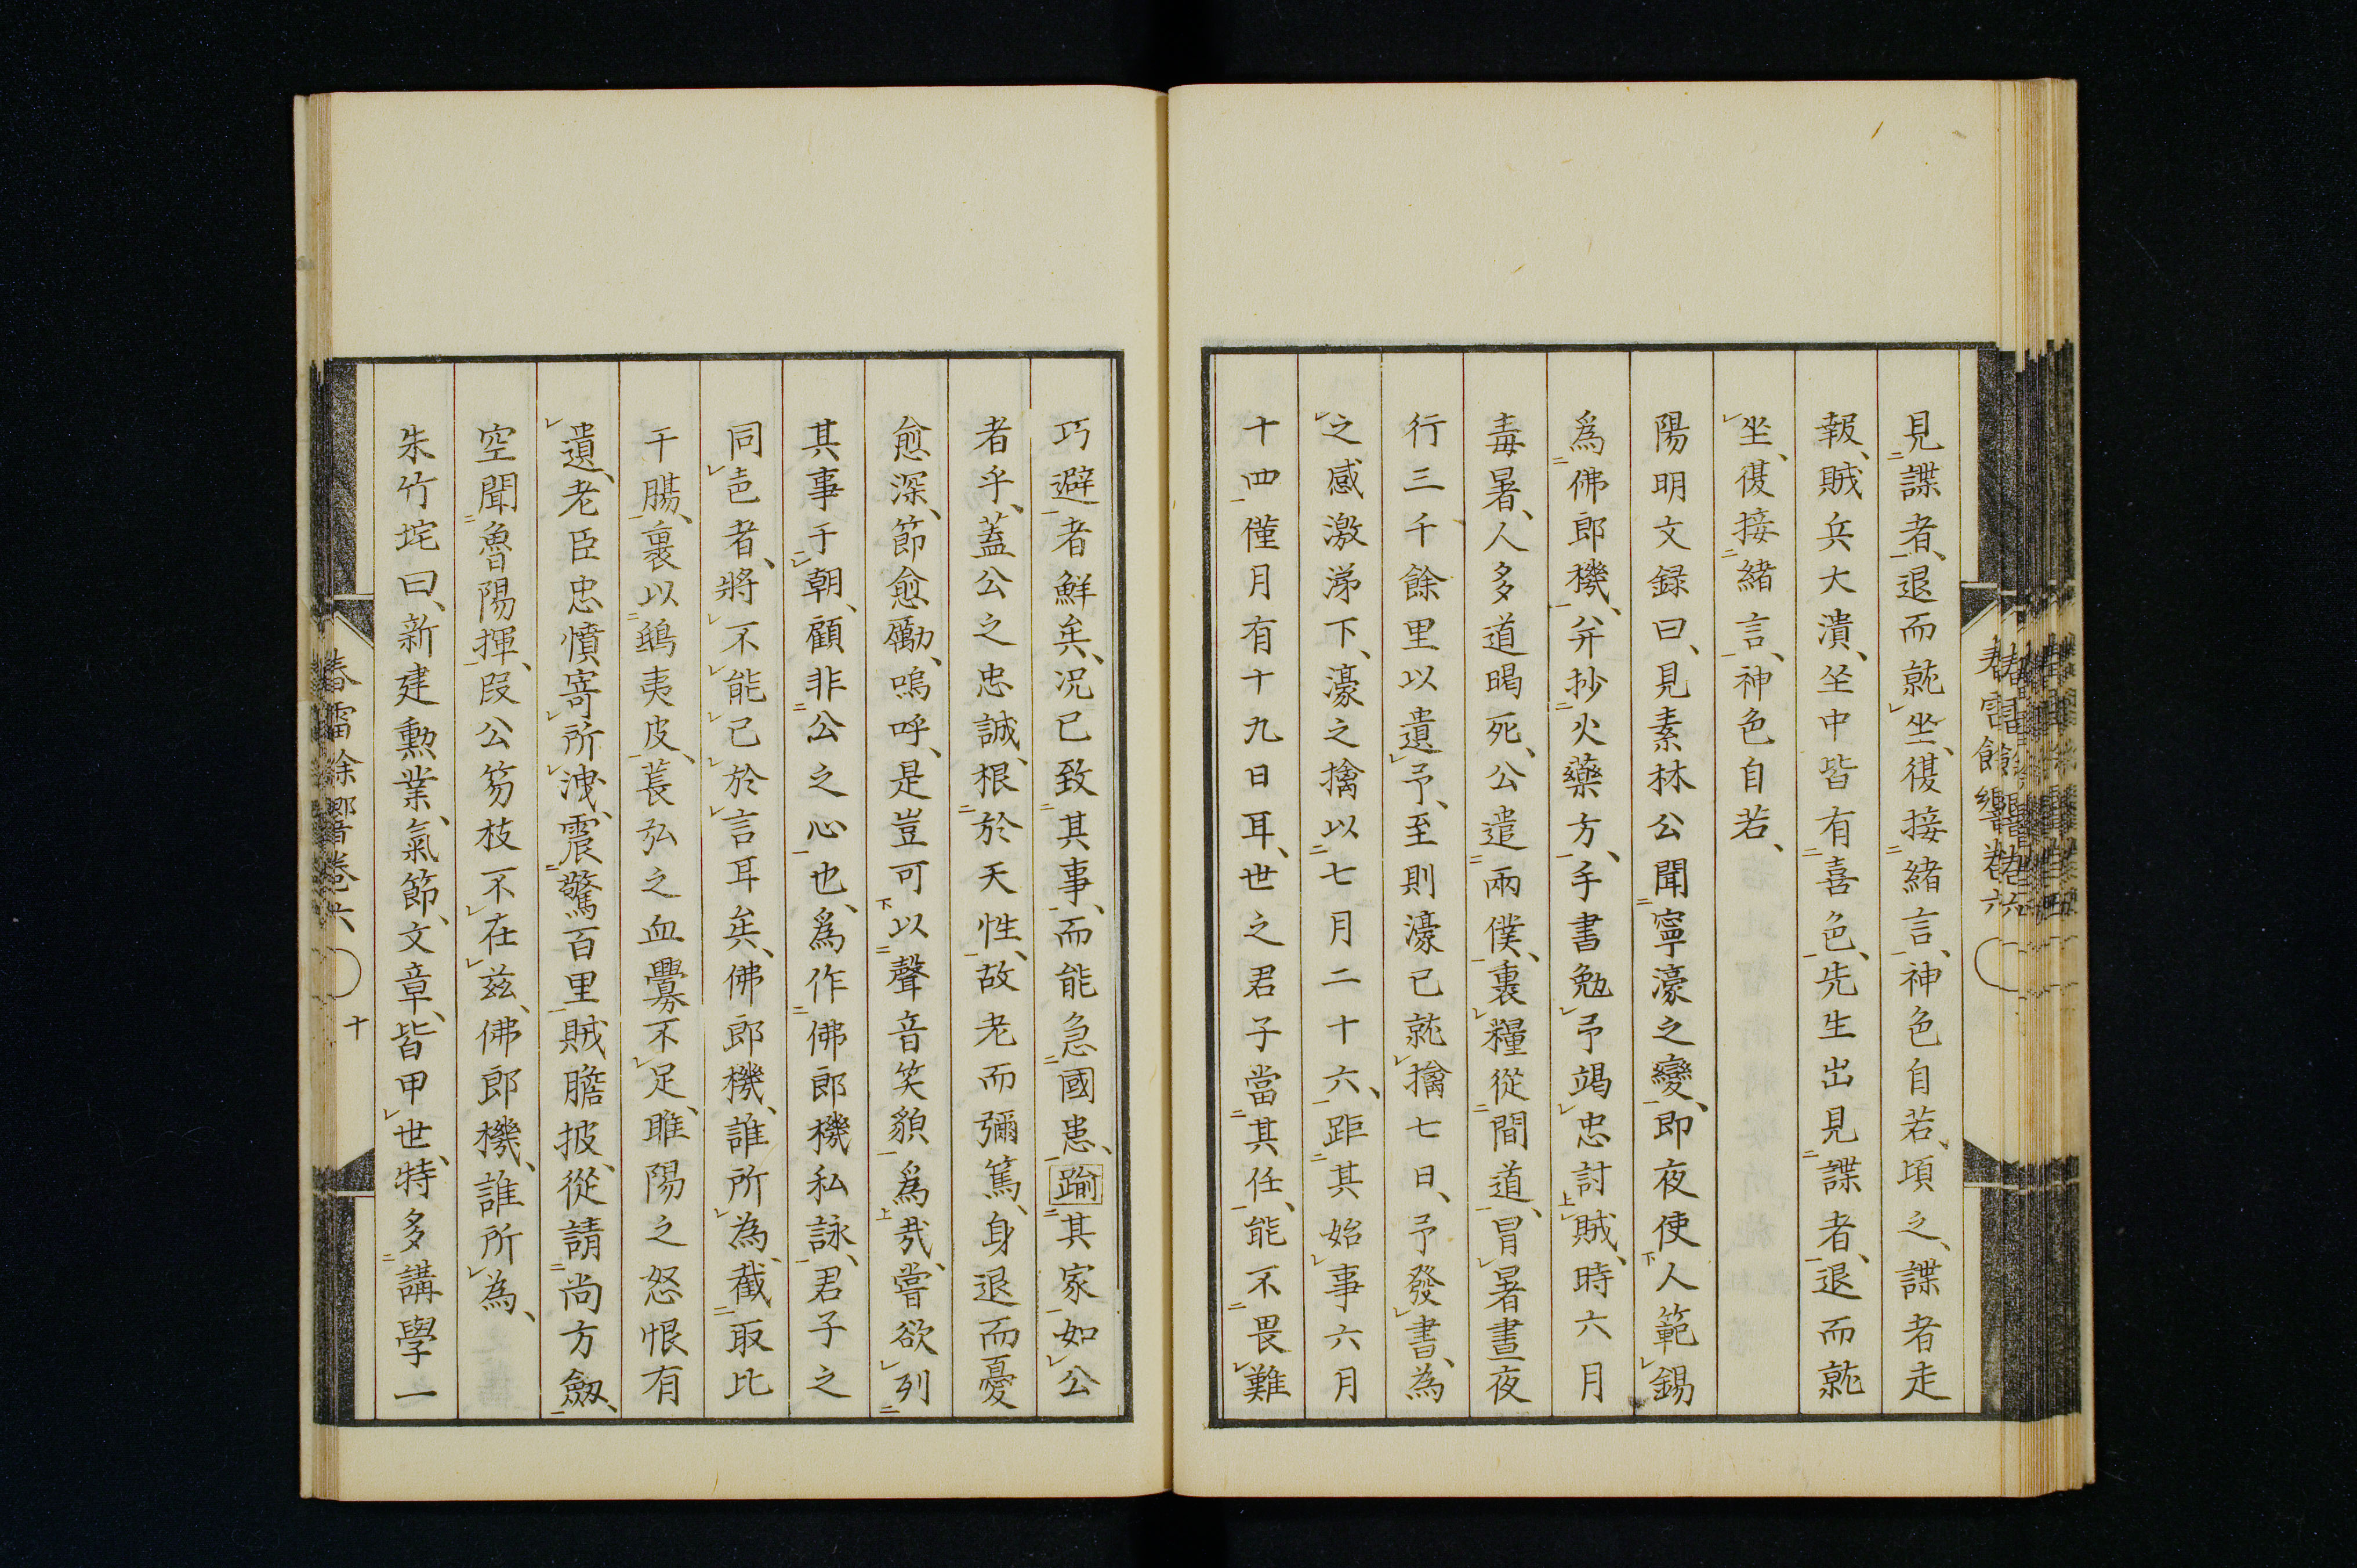 見諜者、退而就坐、復接緒言、神色自若、頃之、諜者走
報、賊兵大潰、坐中皆有喜色、先生出見諜者、退而就
坐、復接緒言、神色自若、
陽明文録曰、見素林公聞寧濠之變、即夜使人範錫
爲佛郎機、并抄火藥方、手書勉予竭忠討賊、時六月
毒暑、人多道暍死、公遣兩僕、裹糧從間道、冒暑晝夜
行三千餘里以遺予、至則濠已就擒七日、予發書、為
之感激涕下、濠之擒以七月二十六、距其始事六月
十四僅月有十九日耳、世之君子當其任、能不畏難
巧避者鮮矣、况已致其事、而能急國患、踰其家如公
者乎、蓋公之忠誠、根於天性、故老而彌篤、身退而憂
愈深、節愈勵、嗚呼、是豈可以聲音笑貌爲哉、嘗欲列
其事于朝、顧非公之心也、爲作佛郎機私詠、君子之
同志者、將不能已於言耳矣、佛郎機、誰所為、截取比
干腸、裹以鴟夷皮、萇弘之血釁不足、睢陽之怒恨有
遺、老臣忠憤寄所洩、震驚百里賊膽披、從請尚方劔、
空聞魯陽揮、段公笏枝不在兹、佛郎機、誰所為、
朱竹垞曰、新建勲業、氣節、文章、皆甲世、特多講學一
春雷餘響卷六
十